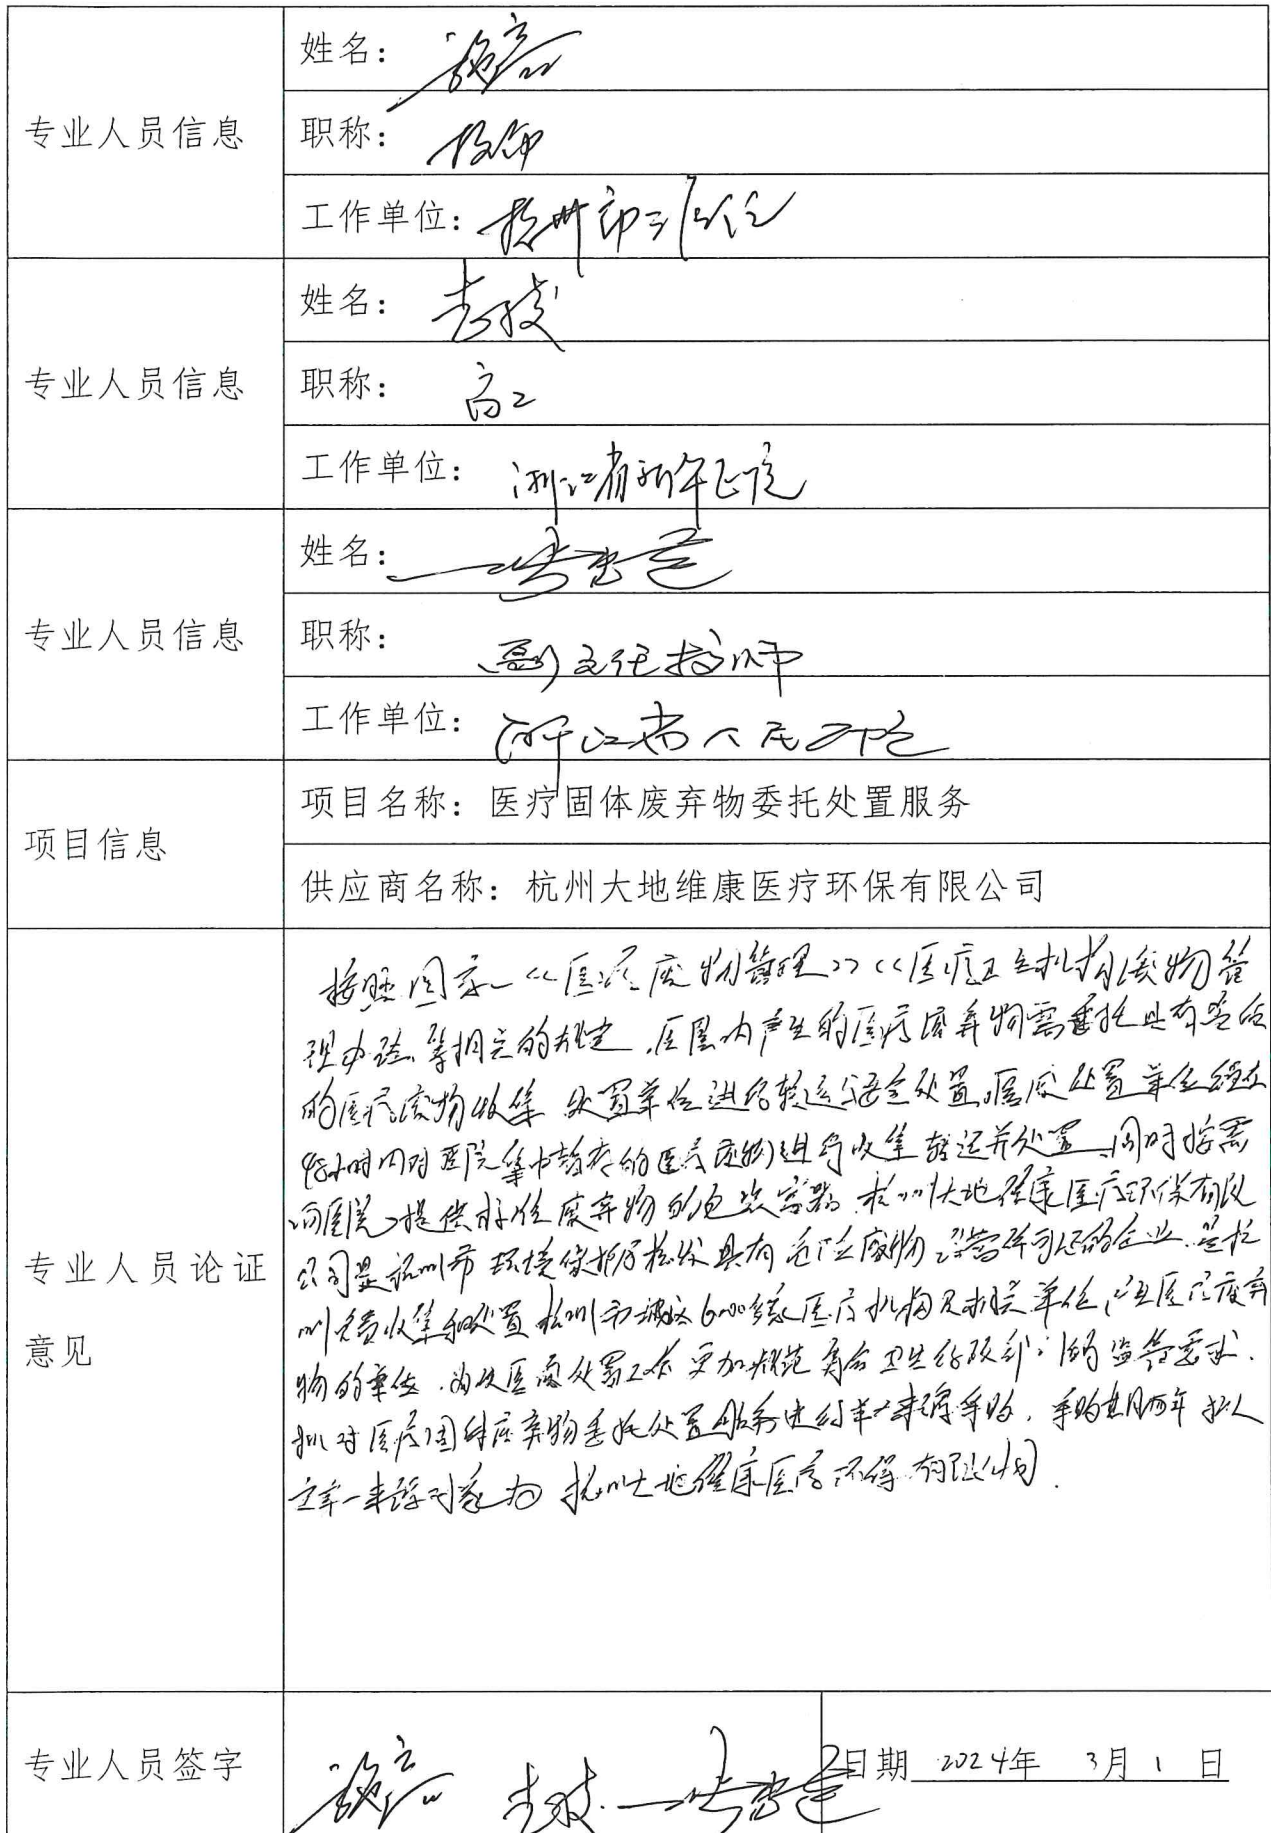 姓名：
专业人员信息
职称：技师
工作单位：杭州市三医院
姓名：
专业人员信息
职称：高工
工作单位：浙江省新华医院
姓名：
专业人员信息
职称：副主任技师
工作单位：浙江省人民医院
项目信息
项目名称：医疗固体废弃物委托处置服务
供应商名称：杭州大地维康医疗环保有限公司
按照国家《医疗废物管理》《医疗卫生机构废物管
理办法》等相关的规定，医院内产生的医疗废弃物需委托具有资质
的医疗废物收集 处置单位进行转运 安全处置，医废处置单位经在
48小时内对医院集中暂存的医疗废物进行收集转运并处置，同时按需
向医院提供存住废弃物的包装容器，杭州大地维康医疗环保有限
公司是杭州市环境保护厅核发具有危险废物经营许可证的企业，是杭
州负责收集和处置杭州市城区6000多家医疗机构及相关单位产生医疗废弃
物的单位，为使医废处置工作更加规范 符合卫生行政部门的监管要求，
拟对医疗固体废弃物委托处置服务进行单一来源采购，采购期两年 拟
单一来源对象为 杭州大地维康医疗环保有限公司.
专业人员论证
意见
专业人员签字
日期 2024年 3月 1 日